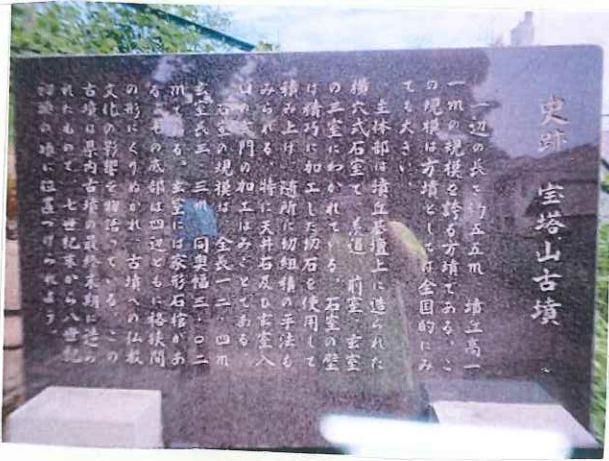 史跡 宝塔山古墳
一辺の長さ約五五m 墳丘高一
一mの規模を誇る方墳である。こ
の規模は方墳としては全国的にみ
ても大きい。
主体部は墳丘基壇上に造られた
横穴式石室で、羨道 前室、玄室
の三室にわかれている。石室の壁
は精巧に加工した切石を使用して
積み上げ、随所に切組積の手法も
みられる。特に天井石及び玄室入
口の 門の加工はみごとである。
石室の規模は、全長一二、四m
玄室長三、三m、同奥幅三、〇二
mである。玄室には家形石棺があ
る。その底部は四辺ともに格狭間
の形にくりぬかれ、古墳への仏教
文化の影響を物語っている。この
古墳は県内古墳の最終末期に造ら
れたもので、七世紀末から八世紀
初頭の頃に位置づけられよう。